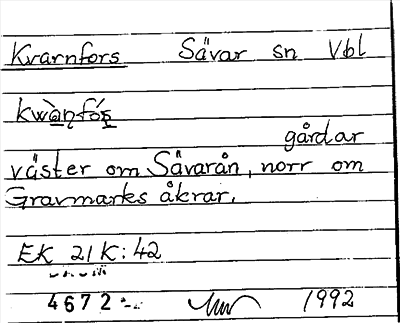 Kvarnfors Sävar sn Vbl
kwànfǫ́ṣ
gårdar
väster om Sävarån, norr om
Gravmarks åkrar.
EK 21K:42
4672
1992